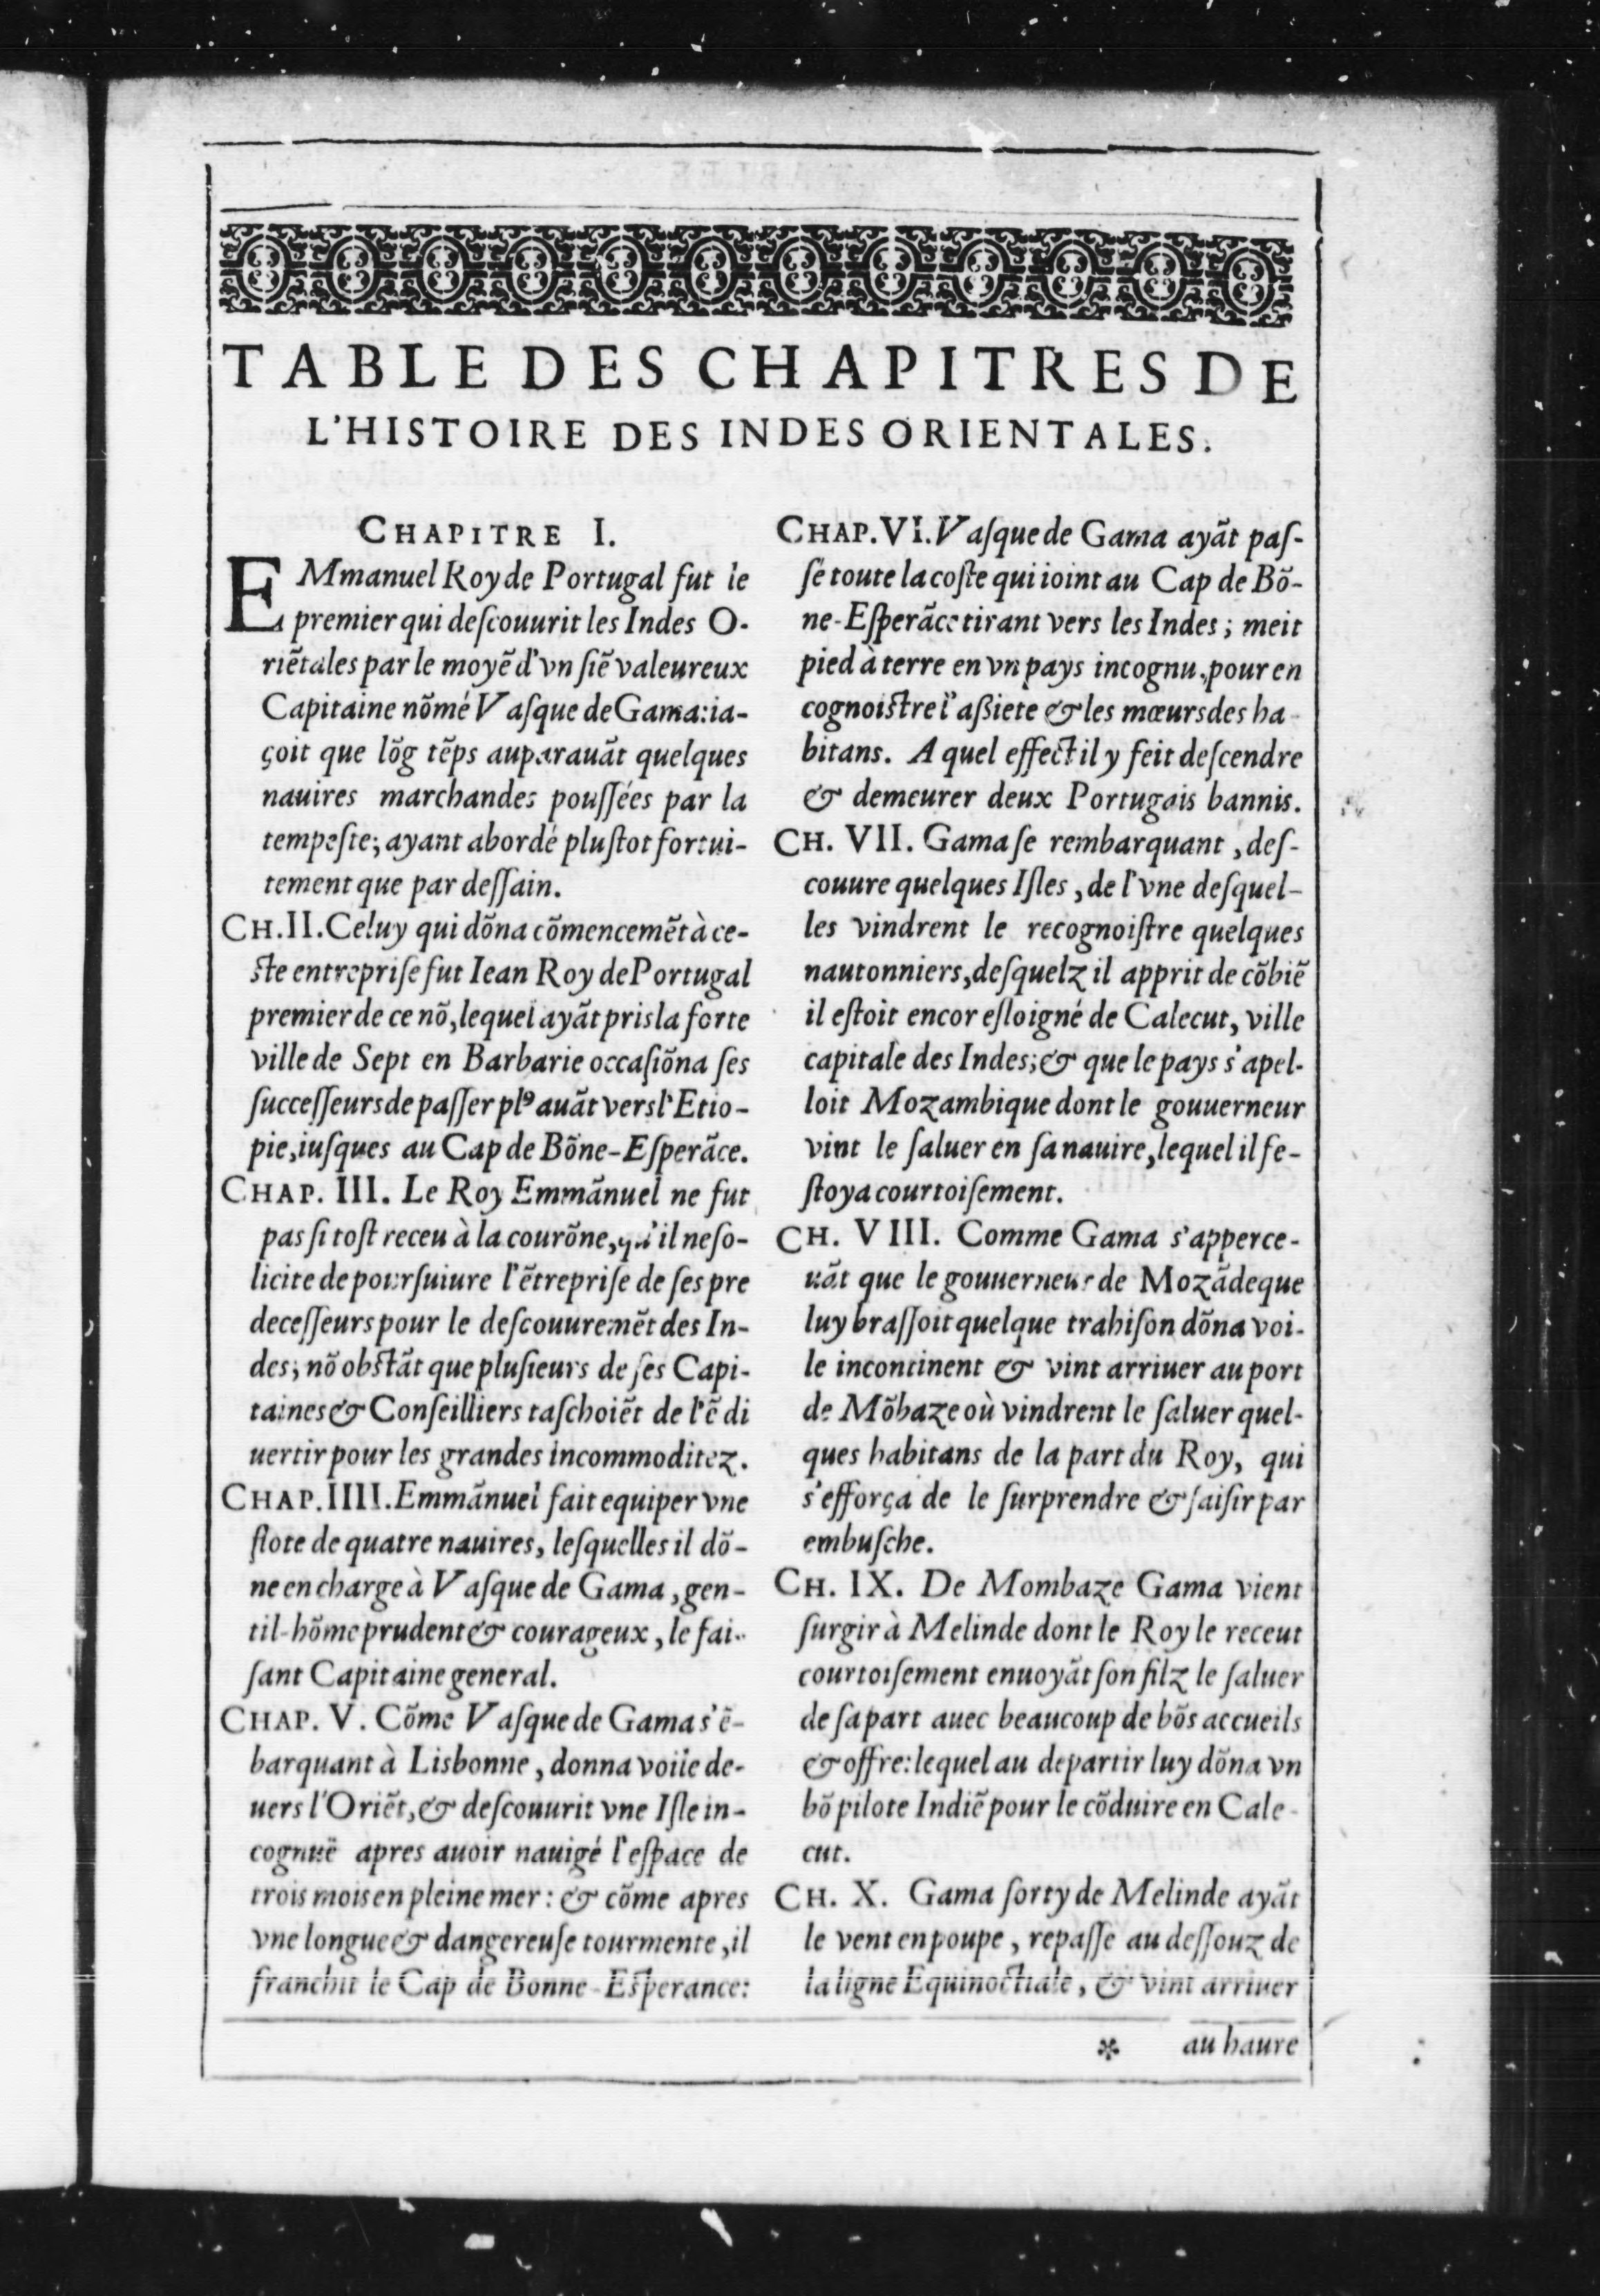 TABLE DES CHAPITRES DE
L'HISTOIRE DES INDES ORIENTALES.
CHAPITRE I.
EMmanuel Roy de Portugal fut le
premier qui deſcouurit les Indes O-
riẽtales par le moyẽ d'vn ſiẽ valeureux
Capitaine nõmé Vaſque de Gama: ia-
çoit que lõg tẽps auparauãt quelques
nauires marchandes pouſſées par la
tempeſte; ayant abordé pluſtot fortui-
tement que par deſſain.
CH. II. Celuy qui dõna cõmencemẽt à ce-
ſte entrepriſe fut Iean Roy de Portugal
premier de ce nõ, lequel ayãt pris la forte
ville de Sept en Barbarie occaſiõna ſes
ſucceſſeurs de paſſer plꝰ auãt vers l'Etio-
pie, iuſques au Cap de Bõne-Eſperãce.
CHAP. III. Le Roy Emmãnuel ne fut
pas ſi toſt receu à la courõne, qu'il ne ſo-
licite de pourſuiure l'ẽtrepriſe de ſes pre
deceſſeurs pour le deſcouuremẽt des In-
des; nõ obſtãt que pluſieurs de ſes Capi-
taines & Conſeilliers taſchoiẽt de l'ẽ di
uertir pour les grandes incommoditez.
CHAP. IIII. Emmãnuel fait equiper vne
flote de quatre nauires, leſquelles il dõ-
ne en charge à Vaſque de Gama, gen-
til-hõme prudent & courageux, le fai-
ſant Capitaine general.
CHAP. V. Cõme Vaſque de Gama s'ẽ-
barquant à Lisbonne, donna voile de-
uers l'Oriẽt, & deſcouurit vne Iſle in-
cognuë apres auoir nauigé l'eſpace de
trois mois en pleine mer: & cõme apres
vne longue & dangereuſe tourmente, il
franchit le Cap de Bonne-Eſperance:
CHAP. VI. Vaſque de Gama ayãt paſ-
ſé toute la coſte qui ioint au Cap de Bõ-
ne-Eſperãce tirant vers les Indes; meit
pied à terre en vn pays incognu, pour en
cognoiſtre l'aßiete & les mœurs des ha-
bitans. A quel effect il y feit deſcendre
& demeurer deux Portugais bannis.
CH. VII. Gama ſe rembarquant, deſ-
couure quelques Iſles, de l'vne deſquel-
les vindrent le recognoiſtre quelques
nautonniers, deſquelz il apprit de cõbiẽ
il eſtoit encor eſloigné de Calecut, ville
capitale des Indes; & que le pays s'apel-
loit Mozambique dont le gouuerneur
vint le ſaluer en ſa nauire, lequel il fe-
ſtoya courtoiſement.
CH. VIII. Comme Gama s'apperce-
uãt que le gouuerneur de Mozãdeque
luy braſſoit quelque trahiſon dõna voi-
le incontinent & vint arriuer au port
de Mõbaze où vindrent le ſaluer quel-
ques habitans de la part du Roy, qui
s'efforça de le ſurprendre & ſaiſir par
embuſche.
CH. IX. De Mombaze Gama vient
ſurgir à Melinde dont le Roy le receut
courtoiſement enuoyãt ſon filz le ſaluer
de ſa part auec beaucoup de bõs accueils
& offre: lequel au departir luy dõna vn
bõ pilote Indiẽ pour le cõduire en Cale-
cut.
CH. X. Gama ſorty de Melinde ayãt
le vent en poupe, repaſſe au deſſouz de
la ligne Equinoctiale, & vint arriuer
* au haure